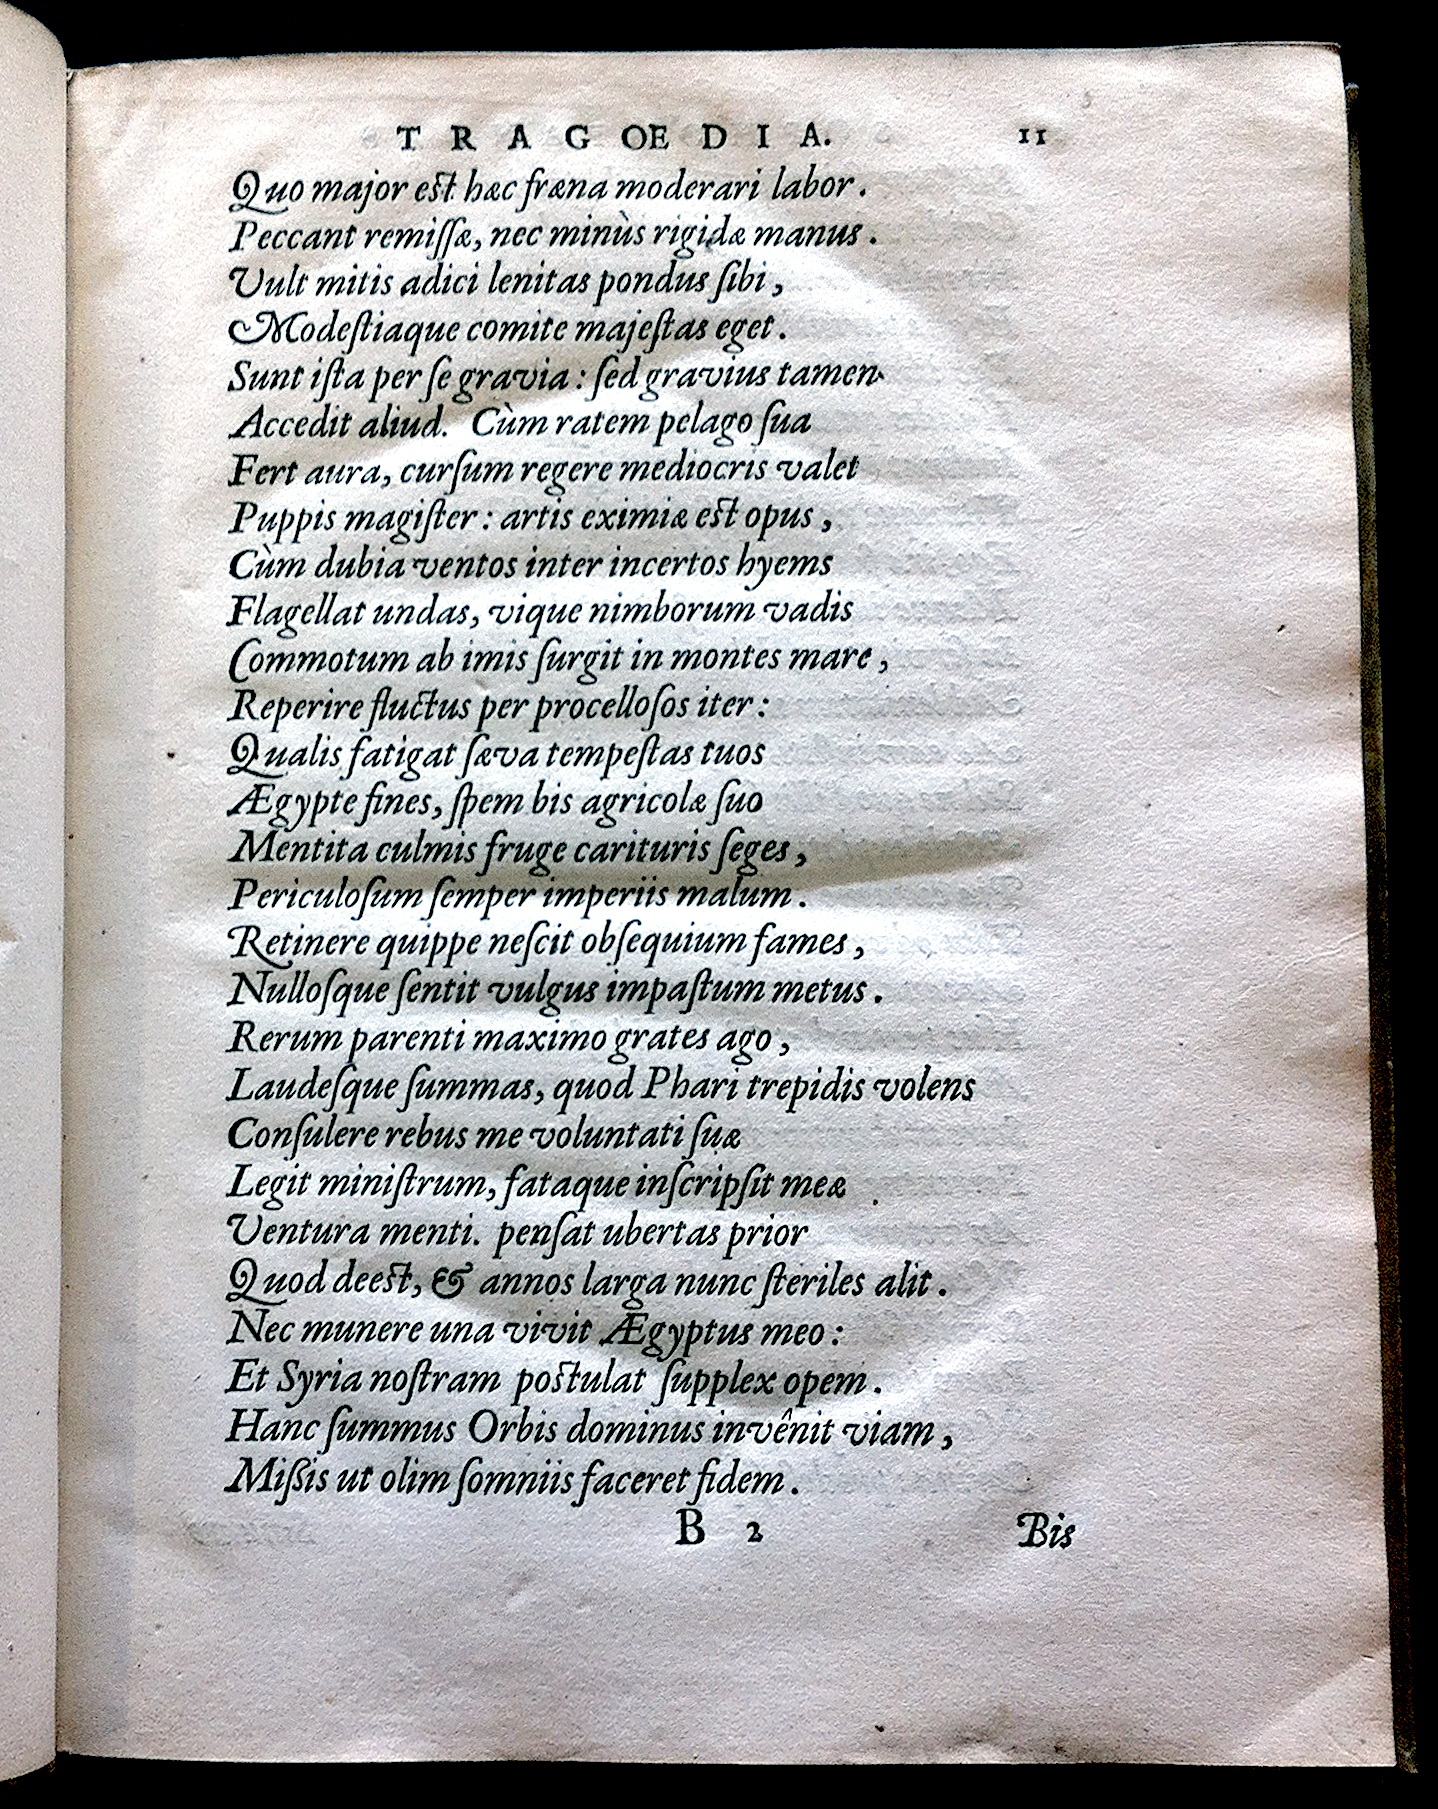 TRAGŒDIA. 11
Quo major est hæc fræna moderari labor.
Peccant remissæ, nec minùs rigidæ manus.
Vult mitis adici lenitas pondus sibi,
Modestiaque comite majestas eget.
Sunt ista per se gravia: sed gravius tamen
Accedit aliud. Cùm ratem pelago sua
Fert aura, cursum regere mediocris valet
Puppis magister: artis eximiæ est opus,
Cùm dubia ventos inter incertos hyems
Flagellat undas, vique nimborum vadis
Commotum ab imis surgit in montes mare,
Reperire fluctus per procellosos iter:
Qualis fatigat sæva tempestas tuos
Ægypte fines, spem bis agricolæ suo
Mentita culmis fruge carituris seges,
Periculosum semper imperiis malum.
Retinere quippe nescit obsequium fames,
Nullosque sentit vulgus impastum metus.
Rerum parenti maximo grates ago,
Laudesque summas, quod Phari trepidis volens
Consulere rebus me voluntati suæ
Legit ministrum, fataque inscripsit meæ
Ventura menti. pensat ubertas prior
Quod deest, & annos larga nunc steriles alit.
Nec munere una vivit Ægyptus meo:
Et Syria nostram postulat supplex opem.
Hanc summus Orbis dominus invênit viam,
Mißis ut olim somniis faceret fidem.
B 2 Bis